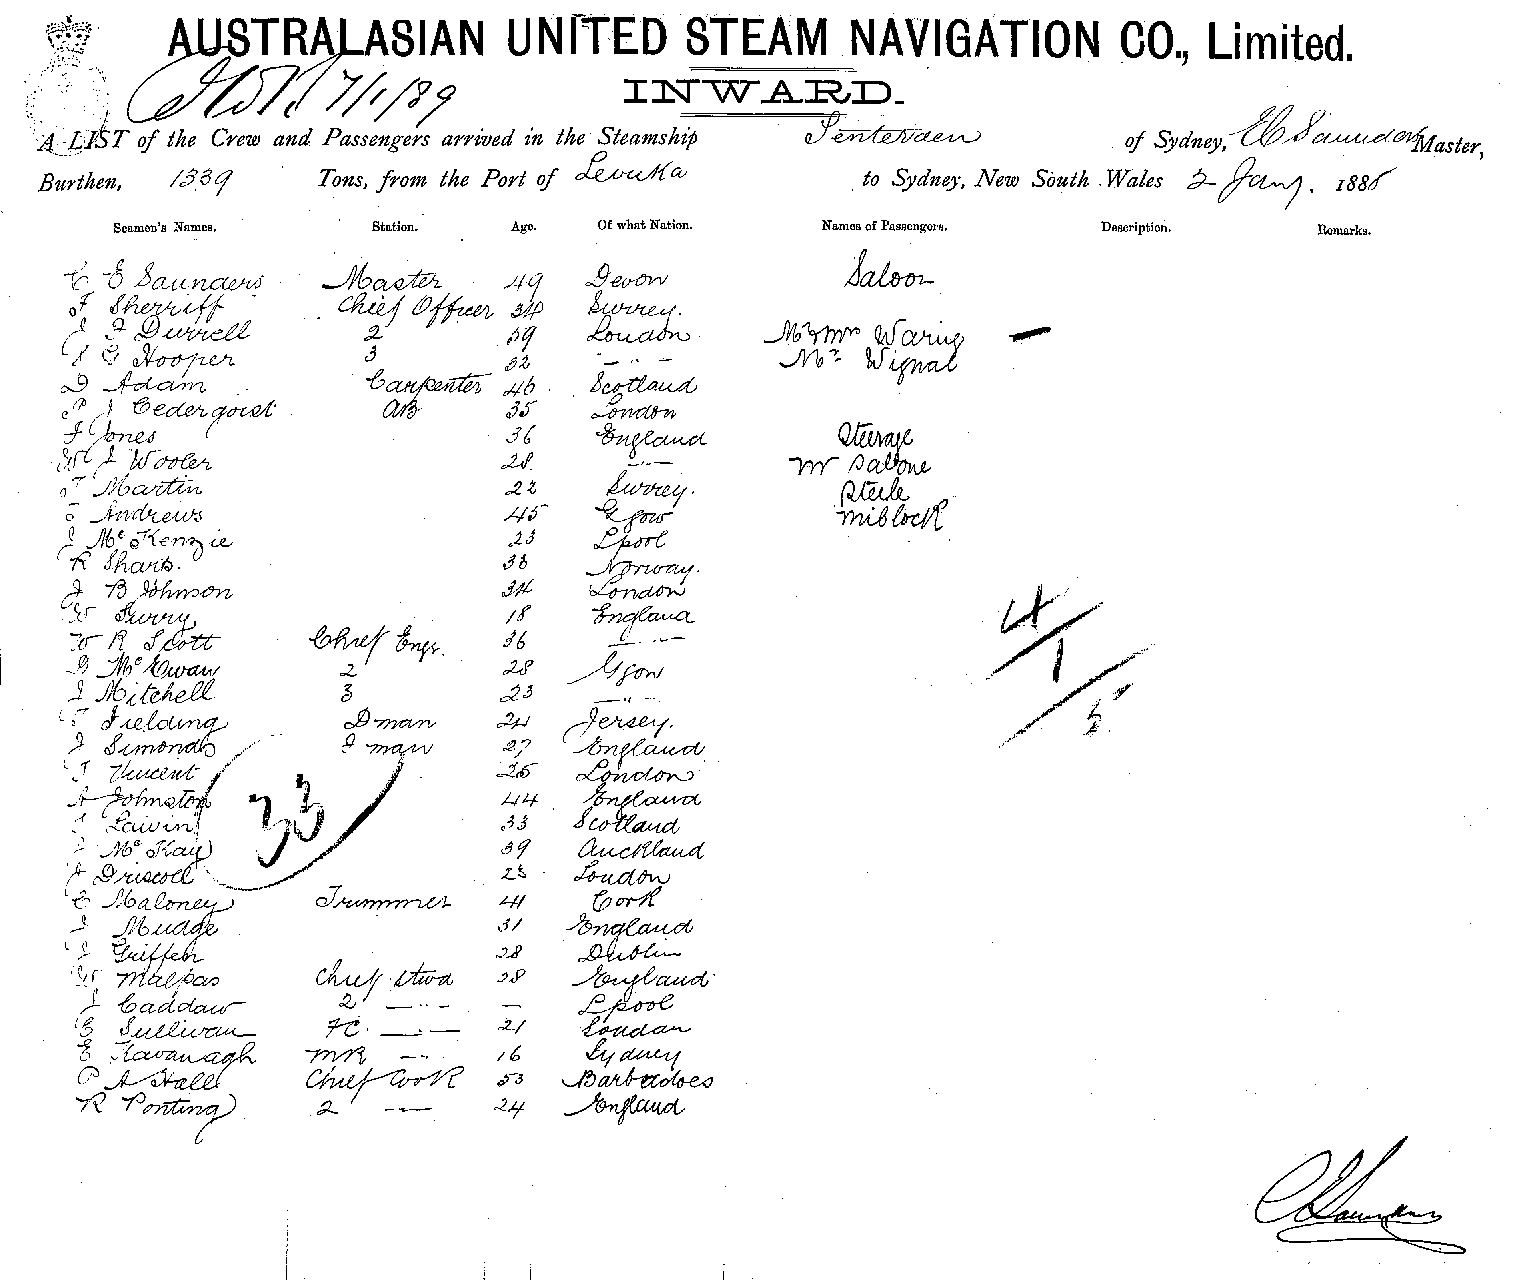 AUSTRALASIAN UNITED STEAM NAVIGATION CO., Limited.
7/1/89
INWARD.
A LIST of the Crew and Passengers arrived in the Steamship Tenterden of Sydney, E Saunders Master,
Burthen, 1339 Tons, from the Port of Levuka to Sydney, New South Wales 2 Jany. 188
Seamen's Names. Station. Age. Of what Nation. Names of Passengers. Description. Remarks.
C E Saunders Master 49 Devon Saloon
F Sherriff Chief Officer 34 Surrey.
J F Durrell 2 39 London Mr & Mrs Waring —
G Hooper 3 32 — " — Mr Wignal
D Adam Carpenter 46 Scotland
P J Cedergoist AB 35 London
J Jones 36 England Steerage
W J Wooler 28 — " — Mr Salone
Martin 22 Surrey. Steele
Andrews 45 Ggow Miblock
J McKenzie 23 Lpool
R Sharp. 33 Norway.
J B Johnson 34 London
W Surry 18 England
W R Scott Chief Engr. 36 — " —
G McEwan 2 28 Ggow
J Mitchell 3 23 — " —
Fielding Dman 24 Jersey.
J Simonds Fman 27 England
Vincent 25 London
A Johnston 44 England
33
Lawin 33 Scotland
McKay 39 Auckland
J Driscoll 23 London
C Maloney Trimmer 41 Cork
J Mudge 31 England
J Griffen 28 Dublin
W Malpas Chief Stwd 28 England
J Caddaw 2 — " — — Lpool
E Sullivan FC. — " — 21 London
E Kavanagh MR — " — 16 Sydney
P A Hall Chief Cook 53 Barbadoes
R Ponting 2 — " — 24 England
4/1/5
C E Saunders